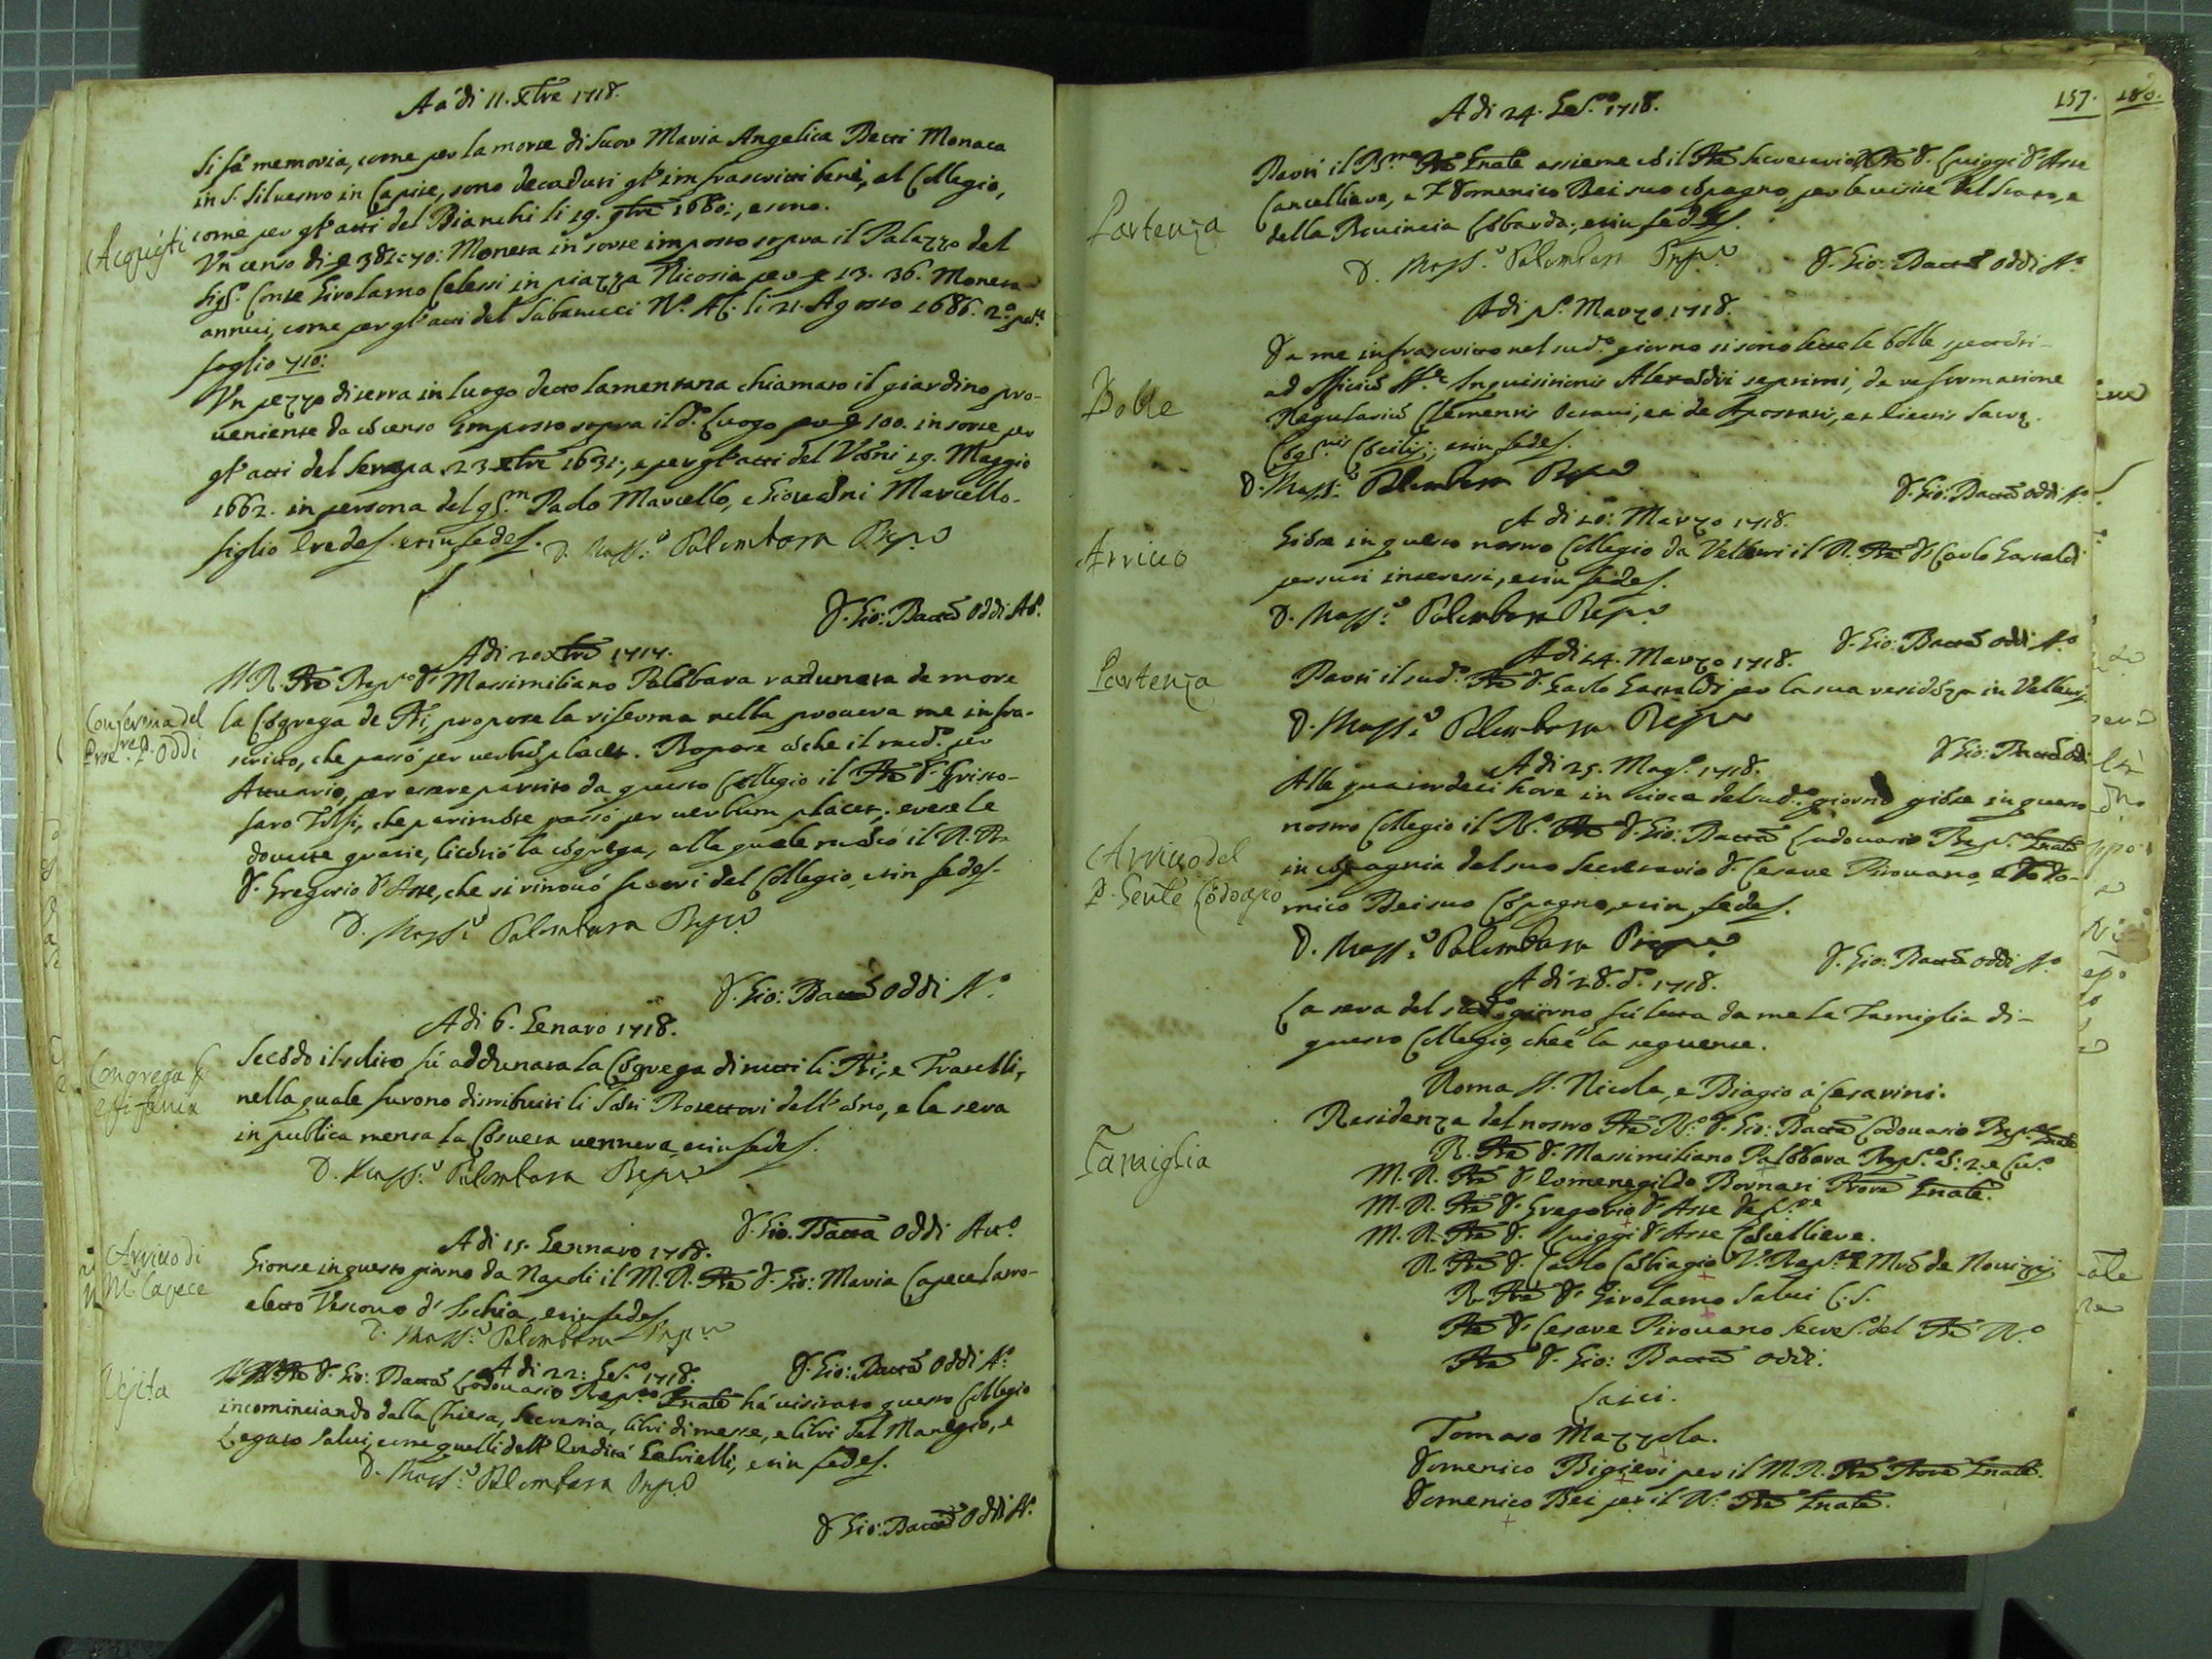 A dì 11. Xbre 1718.
Si fá memoria, come per la morte di Suor Maria Angelica Betti Monaca
in S. Silvestro in Capite, sono decaduti gl'infrascritti beni, al Collegio,
Acquisti
come per gl'atti del Bianchi li 19. 9bre 1680:, e sono.
Un censo di 382:70: Moneta in sorte imposto sopra il Palazzo del
Sigr. Conte Girolamo Celessi in piazza Nicosia per 13. 36. Moneta
annui, come per gl'atti del Sabanucci N.o AC. li 21. Agosto 1686. 2.a
foglio 710:
Un pezzo di terra in luogo detto lamentana chiamato il giardino pro-
veniente da censo imposto sopra il d.o Luogo 100. in sorte per
gl'atti del 23. Xbre 1631:, e per gl'atti del 19. Maggio
1662. in persona del Paolo Marcello, e Giovanni Marcello
figlio etin fedes.
D. Mass.o Palombara Prep.o
D. Gio: Batta Oddi At.o
A di 20 Xbre 1717.
Il R. Pre Prep.o D. Massimiliano Palobara radunata de more
Conferma del
la Cogrega de Pri, propose la riferma nella procura me infra-
Pre. P. Oddi
scritto, che passó per verbu placet. Propose che il med.o per
Attuario, per essere partito da questo Collegio il Pre D. Cristo-
faro che parimte passó per verbum placet; e rese le
dovute grazie, licetió la cogrega, alla quale macó il R. Pre
D. Gregorio d'Asse, che si ritrovó fuori del Collegio, etin fedes.
D. Mass.o Palombara Prep.o
D. Gio: Batta Oddi At.o
A di 6. Genaro 1718.
Congrega
Secodo il solito fú addunata la Cogrega di tutti li Pri, e Fratelli,
Epifania
nella quale furono distribuiti li Sati Protettori dell'ano, e la sera
in publica mensa la Cosueta etin fedes.
D. Mass.o Palombara Prep.o
D. Gio. Batta Oddi Att.o
A di 15. Gennaro 1718.
Arrivo di
Gionse in questo giorno da Napoli il M. R. Pre D. Gio: Maria Capecelatro
M.r Capece
eletto Vescovo d'Ischia, etin fedes
D. Mass.o Palombara Prep.o
D. Gio: Batta Oddi At.o
A di 22: 1718.
Visita
Pre D. Gio: Batta Codovasio Prep.to Gnale há visitato questo Collegio
incominciando dalla Chiesa, Secrestia, libri di messe, e libri del Manegio, e
Legato Salvi, come quelli dell'Eredità Gabrielli, etin fedes.
D. Mass.o Palombara Prep.o
D. Gio: Batta Oddi At.o
157. 180.
A di 24. 1718.
Partì il R.mo Pre Gnale assieme co il Pre Secretario, Pre D. Luiggi d'Asse
Partenza
Cancelliere, e F. Domenico Bei suo copagno, per le visite del Stato, e
della Provincia Lobarda; etin fedes.
D. Mass.o Palombara Prep.o
D. Gio: Batta Oddi At.o
A di p.o Marzo 1718.
Da me infrascritto nel sud.o giorno si sono lette le bolle spectati
Bolle
ad Officiu S.te Inquisitionis Alexadri septimi, de reformatione
Regulariu Clementis Octavi, et de Apostatis, et Eiectis Sacr.
Cog.nis Cocilij; etin fedes.
D. Mass.o Palombara Prep.o
D. Gio: Batta Oddi At.o
A di 20: Marzo 1718.
Arrivo
Giose in questo nostro Collegio da Velletri il R. Pre D. Carlo Gastaldi
per suoi interessi, etin fedes.
D. Mass.o Palombara Prep.o
D. Gio: Batta Oddi At.o
A di 24. Marzo 1718.
Partenza
Partì il sud.o Pre D. Carlo Gastaldi per la sua resideza in Velletri
D. Mass.o Palombara Prep.o
D. Gio: Batta Oddi
A di 25. Mag.o 1718.
Alle quatordeci hore in circa del sud.o giorno giose in questo
Arrivo del
nostro Collegio il R.mo Pre D. Gio: Batta Codovasio Prep.to Gnale
P. Genle Codovasio
in copagnia del suo Secretario D. Cesare Pirovano, e Do-
mico Bei suo Copagno, etin fedes.
D. Mass.o Palombara Prep.o
D. Gio: Batta Oddi At.o
A di 28. d.o 1718.
La sera del sud.o giorno fú letta da me la Famiglia di
questo Collegio, che è la seguente.
Roma SS. Nicola, e Biagio á Cesarini.
Famiglia
Residenza del nostro Pre R.mo D. Gio: Batta Codovasio Prep.to Gnale
R. Pre D. Massimiliano Palobara Prep.o
M. R. Pre D. Ermenegildo Bornati Proc Gnale.
M. R. Pre D. Gregorio d'Asse
M. R. Pre D. Luiggi d'Asse Cacelliere.
R. Pre D. Carlo V. Prep.to e Mro de Novizzij
R. Pre D. Girolamo Salvi C. S.
Pre D. Cesare Pirovano Secret.o del Pre R.mo
Pre D. Gio: Batta Oddi.
Laici.
Tomaso Mazzola.
Domenico Bigieri per il M. R. Pre Proc Gnale.
Domenico Bei per il R.mo Pre Gnale.